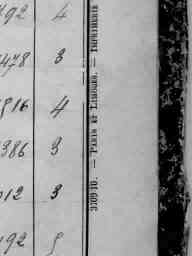 492 4
478 3
916 4
386 3
012 3
492 5
3709-10. — PARIS ET LIMOGES. — IMPRIMERIE